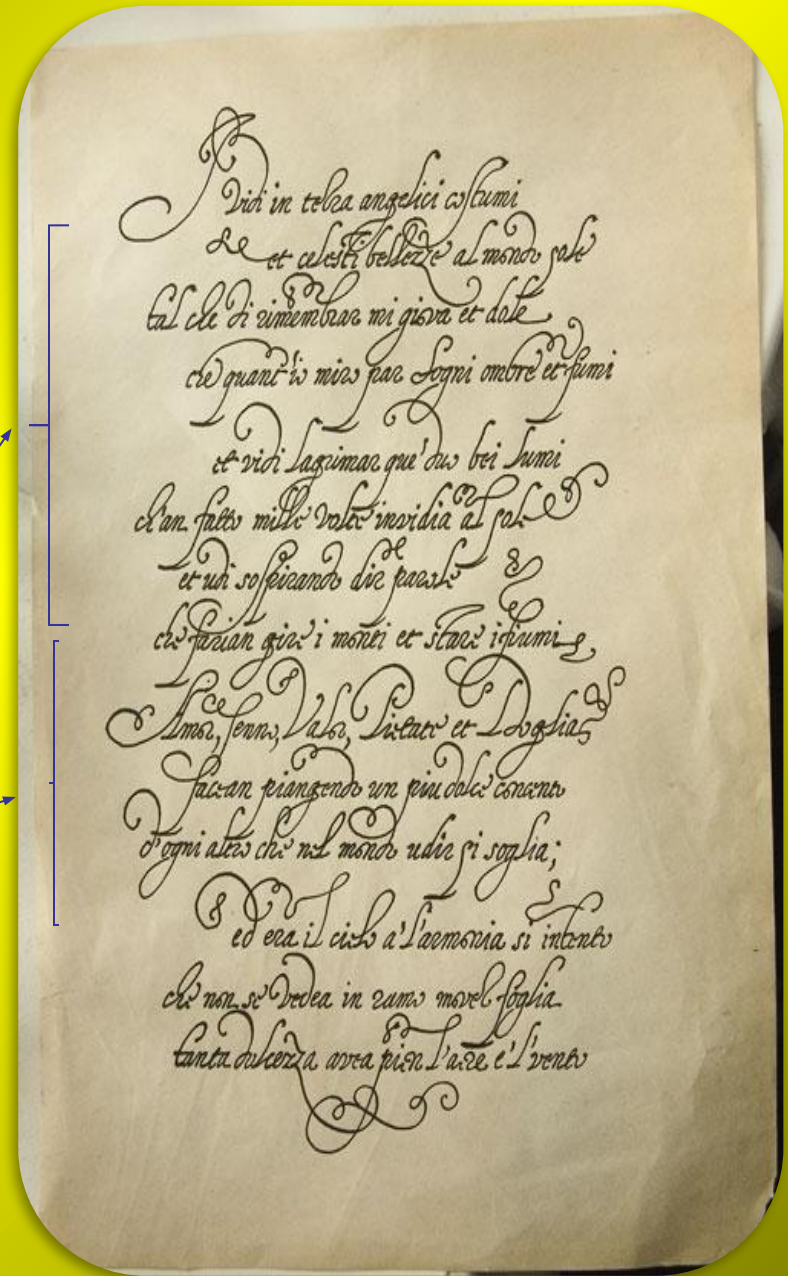 I Vidi in terra angelici costumi
et celesti bellezze al mondo sole
tal che di rimembrar mi giova et dole
che quant'io miro par sogni ombre et fumi
et vidi lagrimar que' duo bei lumi
ch'an fatto mille volte invidia al sole
et udi sospirando dir parole
che farian gire i monti et stare i fiumi
Amor, Senno, Valor, Pietate et Doglia
facean piangendo un piu dolce concento
d'ogni altro che nel mondo udir si soglia;
ed era il cielo a l'armonia si intento
che non se vedea in ramo mover foglia
tanta dolcezza avea pien l'aere e 'l vento